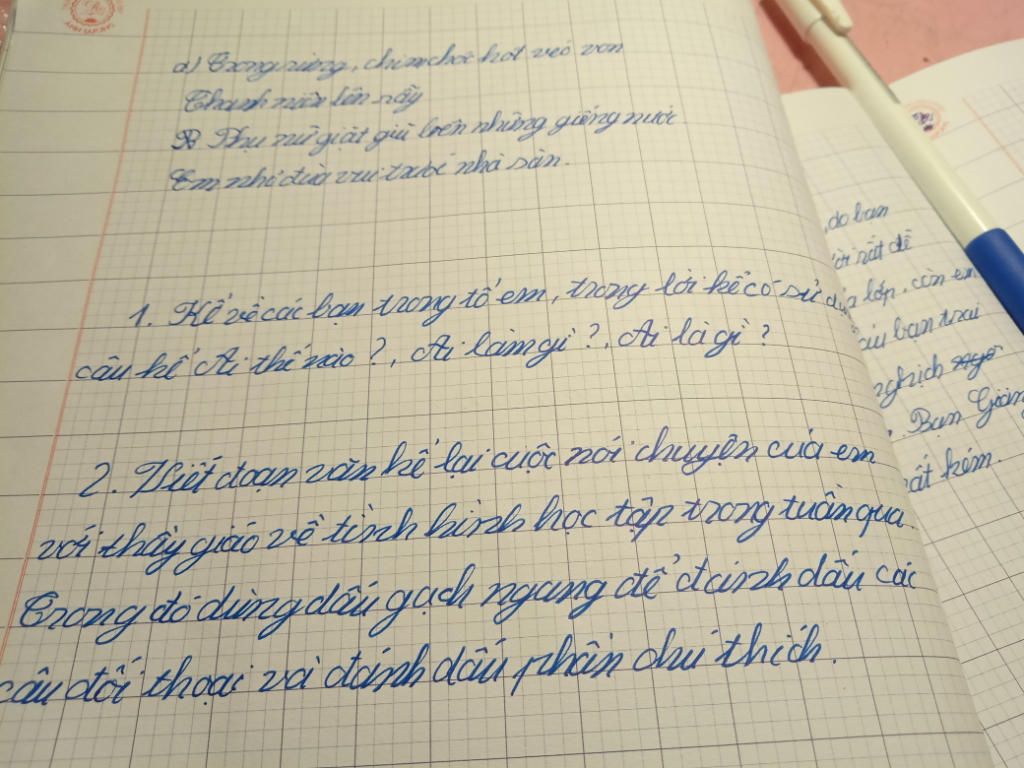 a) Trong rừng, chim chóc hót véo von
Thanh niên lên rẫy
Phụ nữ giặt giũ bên những giếng nước
Em nhỏ đùa vui trước nhà sàn.
1. Kể về các bạn trong tổ em, trong lời kể có sử
câu kể Ai thế nào?, Ai làm gì?, Ai là gì?
2. Viết đoạn văn kể lại cuộc nói chuyện của em
với thầy giáo về tình hình học tập trong tuần qua.
Trong đó dùng dấu gạch ngang để đánh dấu các
câu đối thoại và đánh dấu phần chú thích.
do bạn
rất dễ
lớp, còn em
bạn trai
nghịch
Bạn Giang
rất kém.